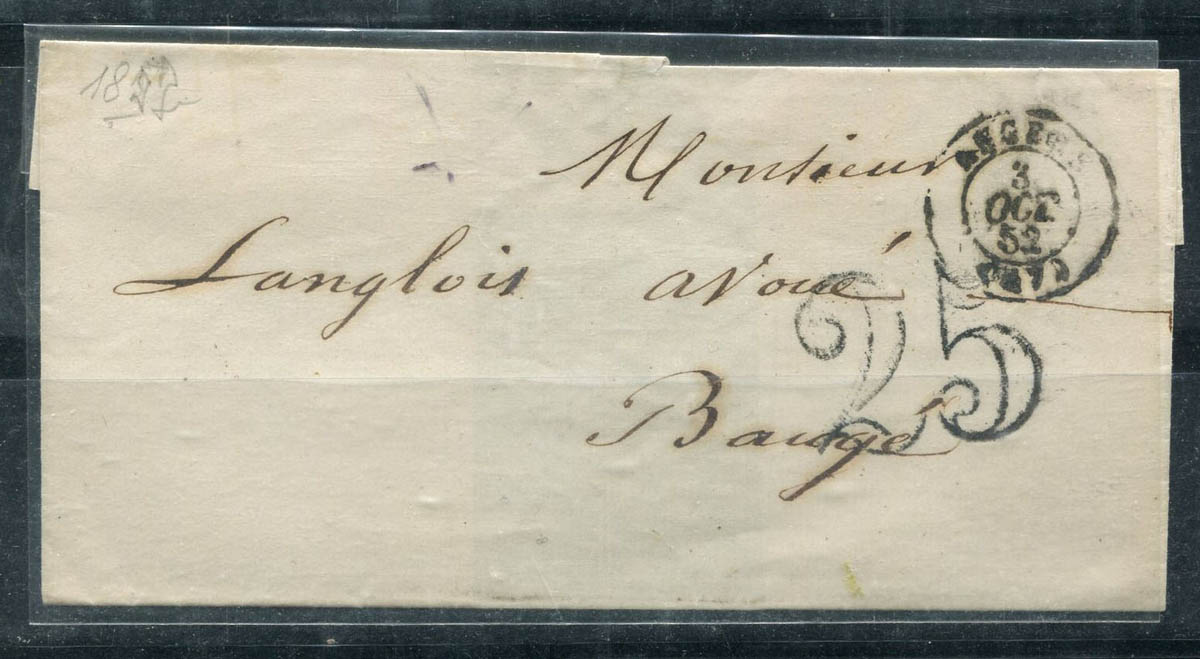 18
Monsieur
Langlois avoué
Baugé
3
OCT.
52
25